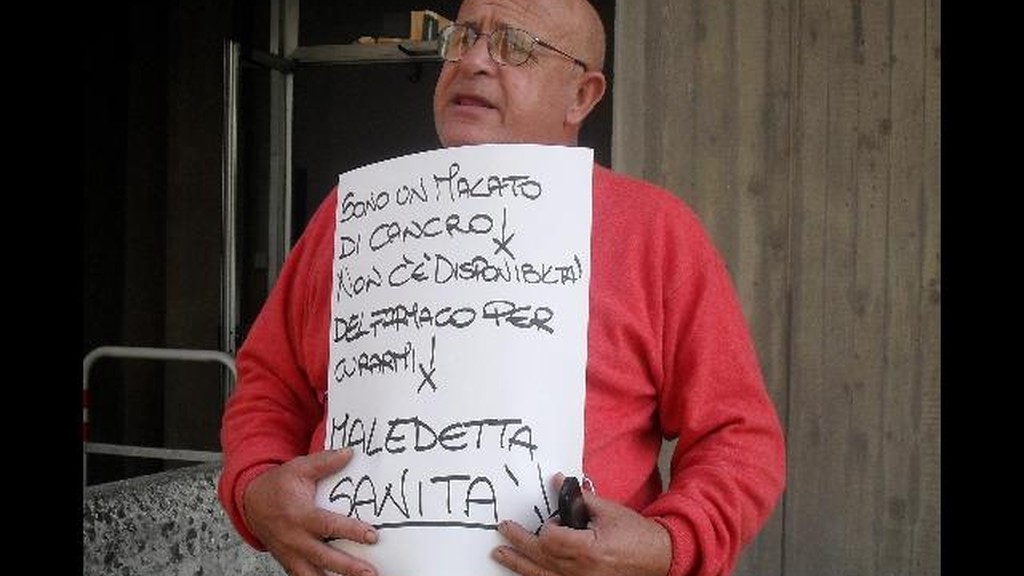 SONO UN MALATO
DI CANCRO!
NON C'E' DISPONIBILTA'
DEL FARMACO PER
CURARMI!
MALEDETTA
SANITA'!